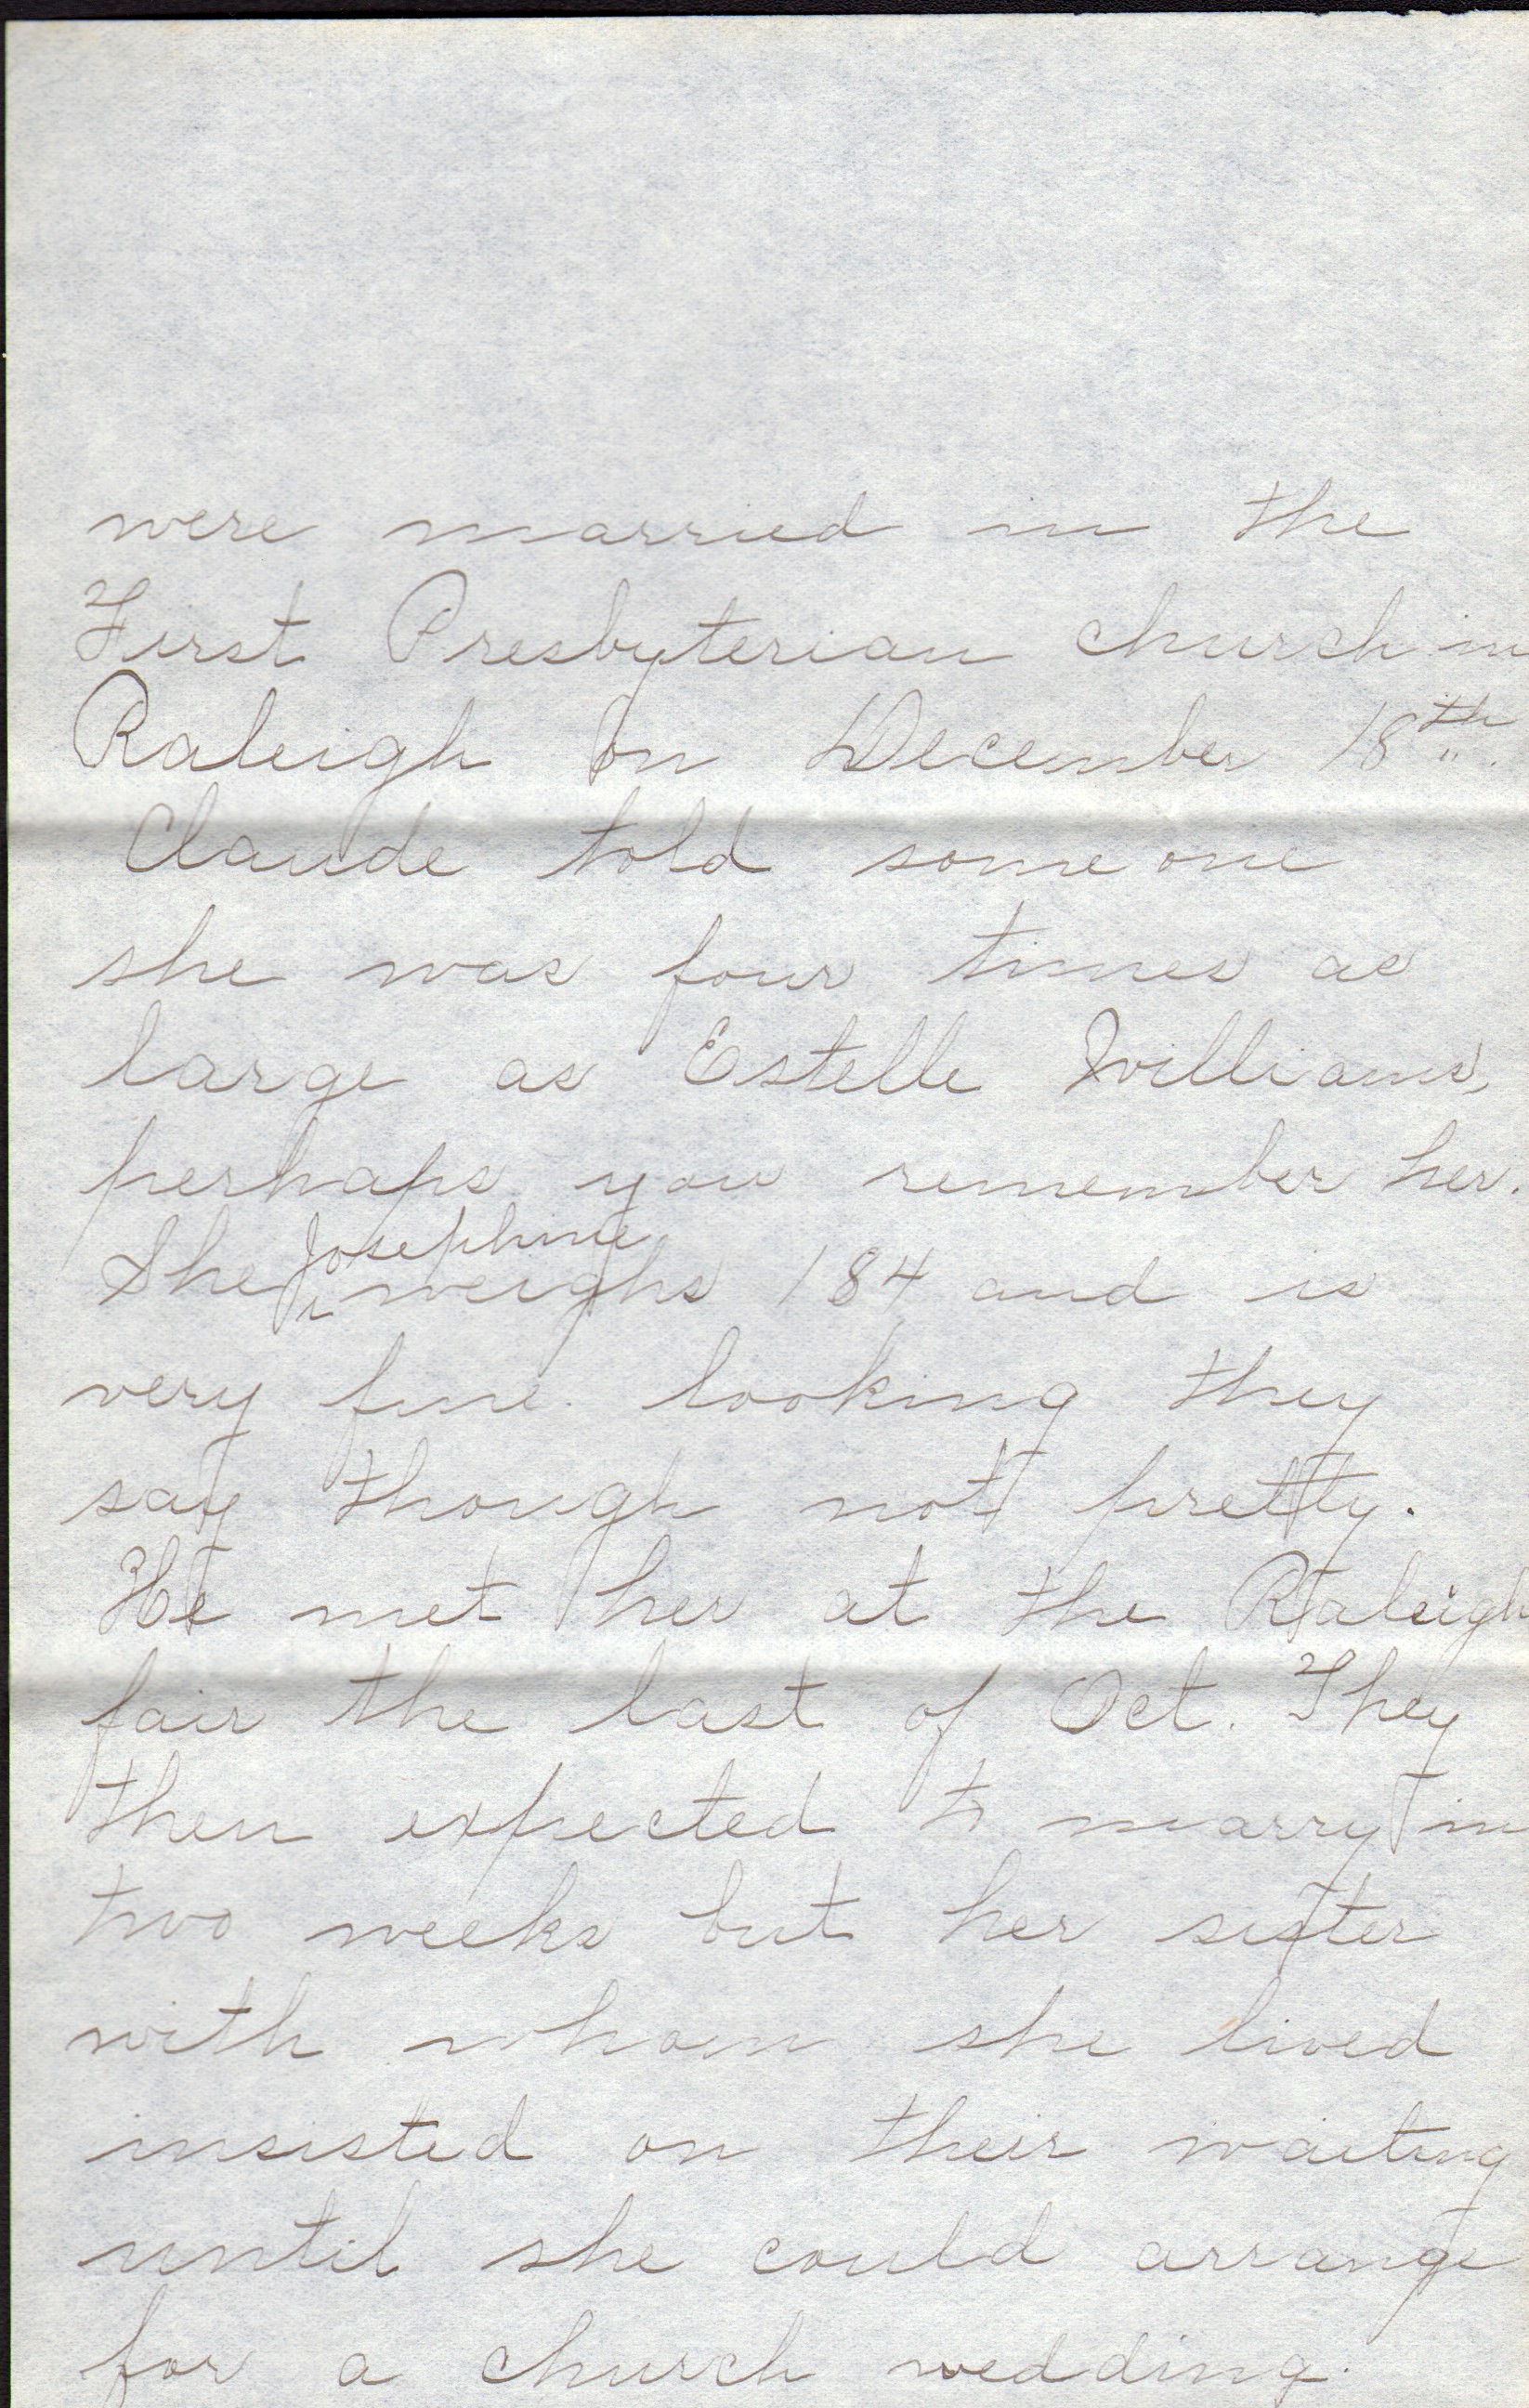 were married in the
First Presbyterian church in
Raleigh on December 18th.
Claude told some one
she was four times as
large as Estelle Williams,
perhaps you remember her.
Josephine
She weighs 184 and is
very fine looking they
say though not pretty.
He met her at the Raleigh
fair the last of Oct. They
then expected to marry in
two weeks but her sister
with whom she lived
insisted on their waiting
until she could arrange
for a church wedding.